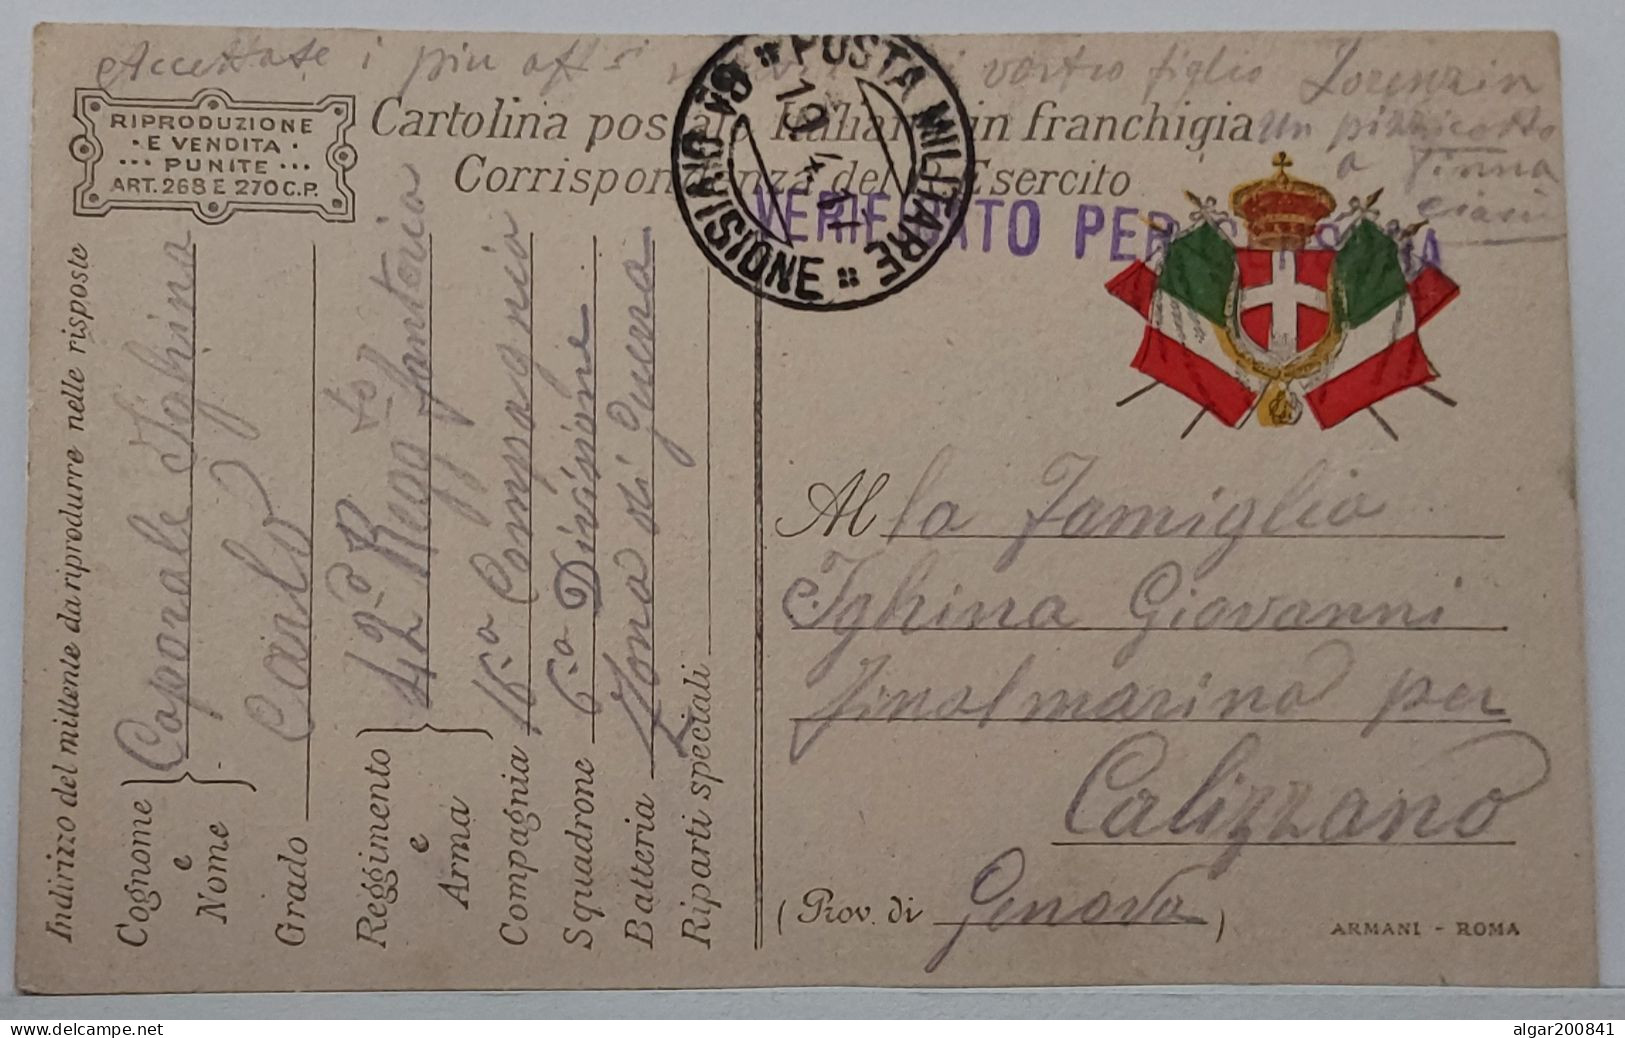 Accettate i più aff.si vostro figlio
Un pizzicotto
a
RIPRODUZIONE
· E VENDITA ·
··· PUNITE ···
ART. 268 E 270 C.P.
Cartolina postale Italiana in franchigia
Corrispondenza del R. Esercito
POSTA MILITARE
8A DIVISIONE
19. 4. 17
VERIFICATO PER CENSURA
Indirizzo del mittente da riprodurre nelle risposte
Cognome e Nome Caporale Ighina Carlo
Grado
Reggimento e Arma 42° Regg.to fanteria
Compagnia 15a Compagnia
Squadrone 6a Divisione
Batteria Zona di Guerra
Riparti speciali
Alla Famiglia
Ighina Giovanni
Finalmarina per
Calizzano
(Prov. di Genova)
ARMANI - ROMA
delcampe.net
algar200841